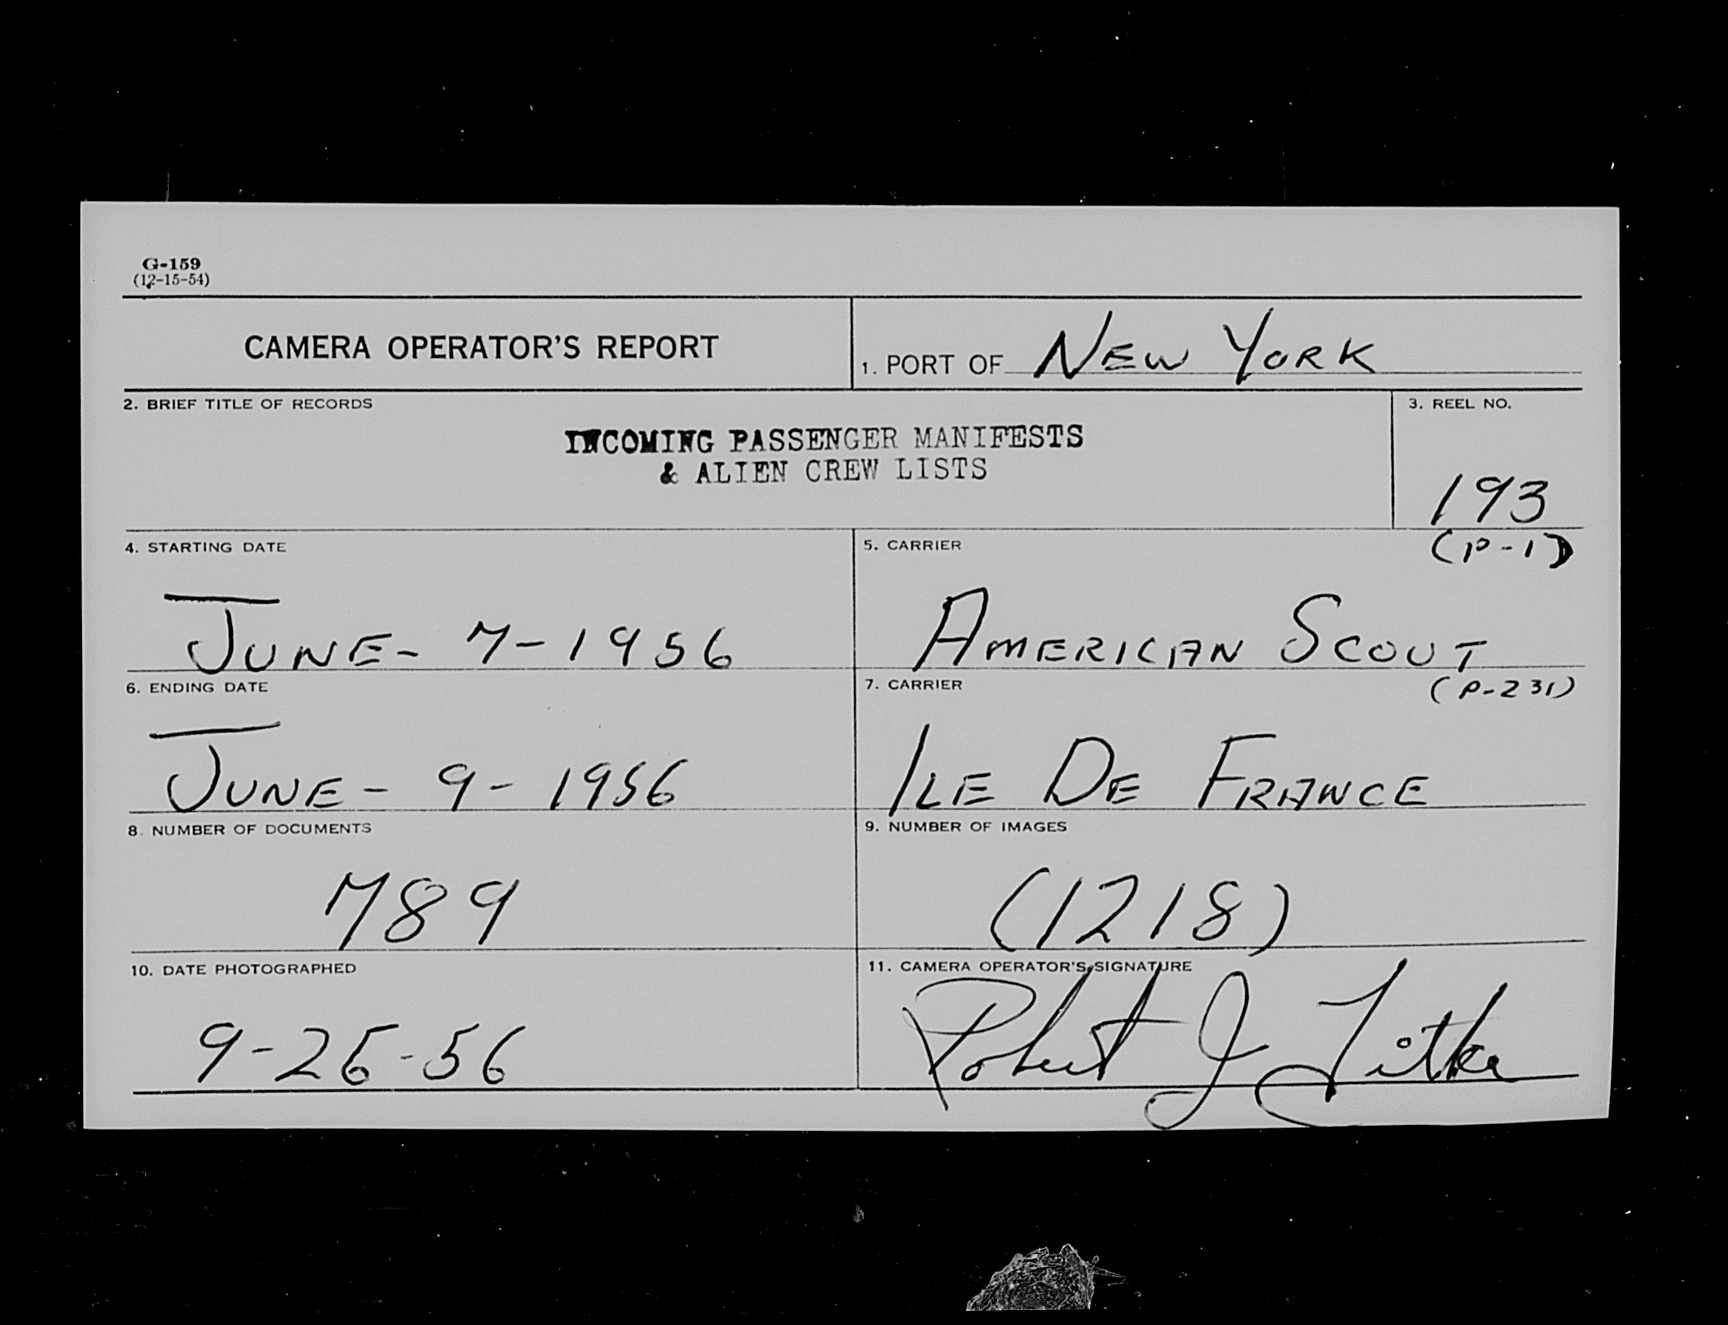 G-159
(12-15-54)
CAMERA OPERATOR'S REPORT
1. PORT OF NEW YORK
2. BRIEF TITLE OF RECORDS
INCOMING PASSENGER MANIFESTS
& ALIEN CREW LISTS
3. REEL NO.
193
(P-1)
4. STARTING DATE
JUNE- 7-1956
5. CARRIER
AMERICAN SCOUT
6. ENDING DATE
JUNE - 9 - 1956
7. CARRIER
(P-231)
ILE DE FRANCE
8. NUMBER OF DOCUMENTS
789
9. NUMBER OF IMAGES
(1218)
10. DATE PHOTOGRAPHED
9-26-56
11. CAMERA OPERATOR'S SIGNATURE
Robert J